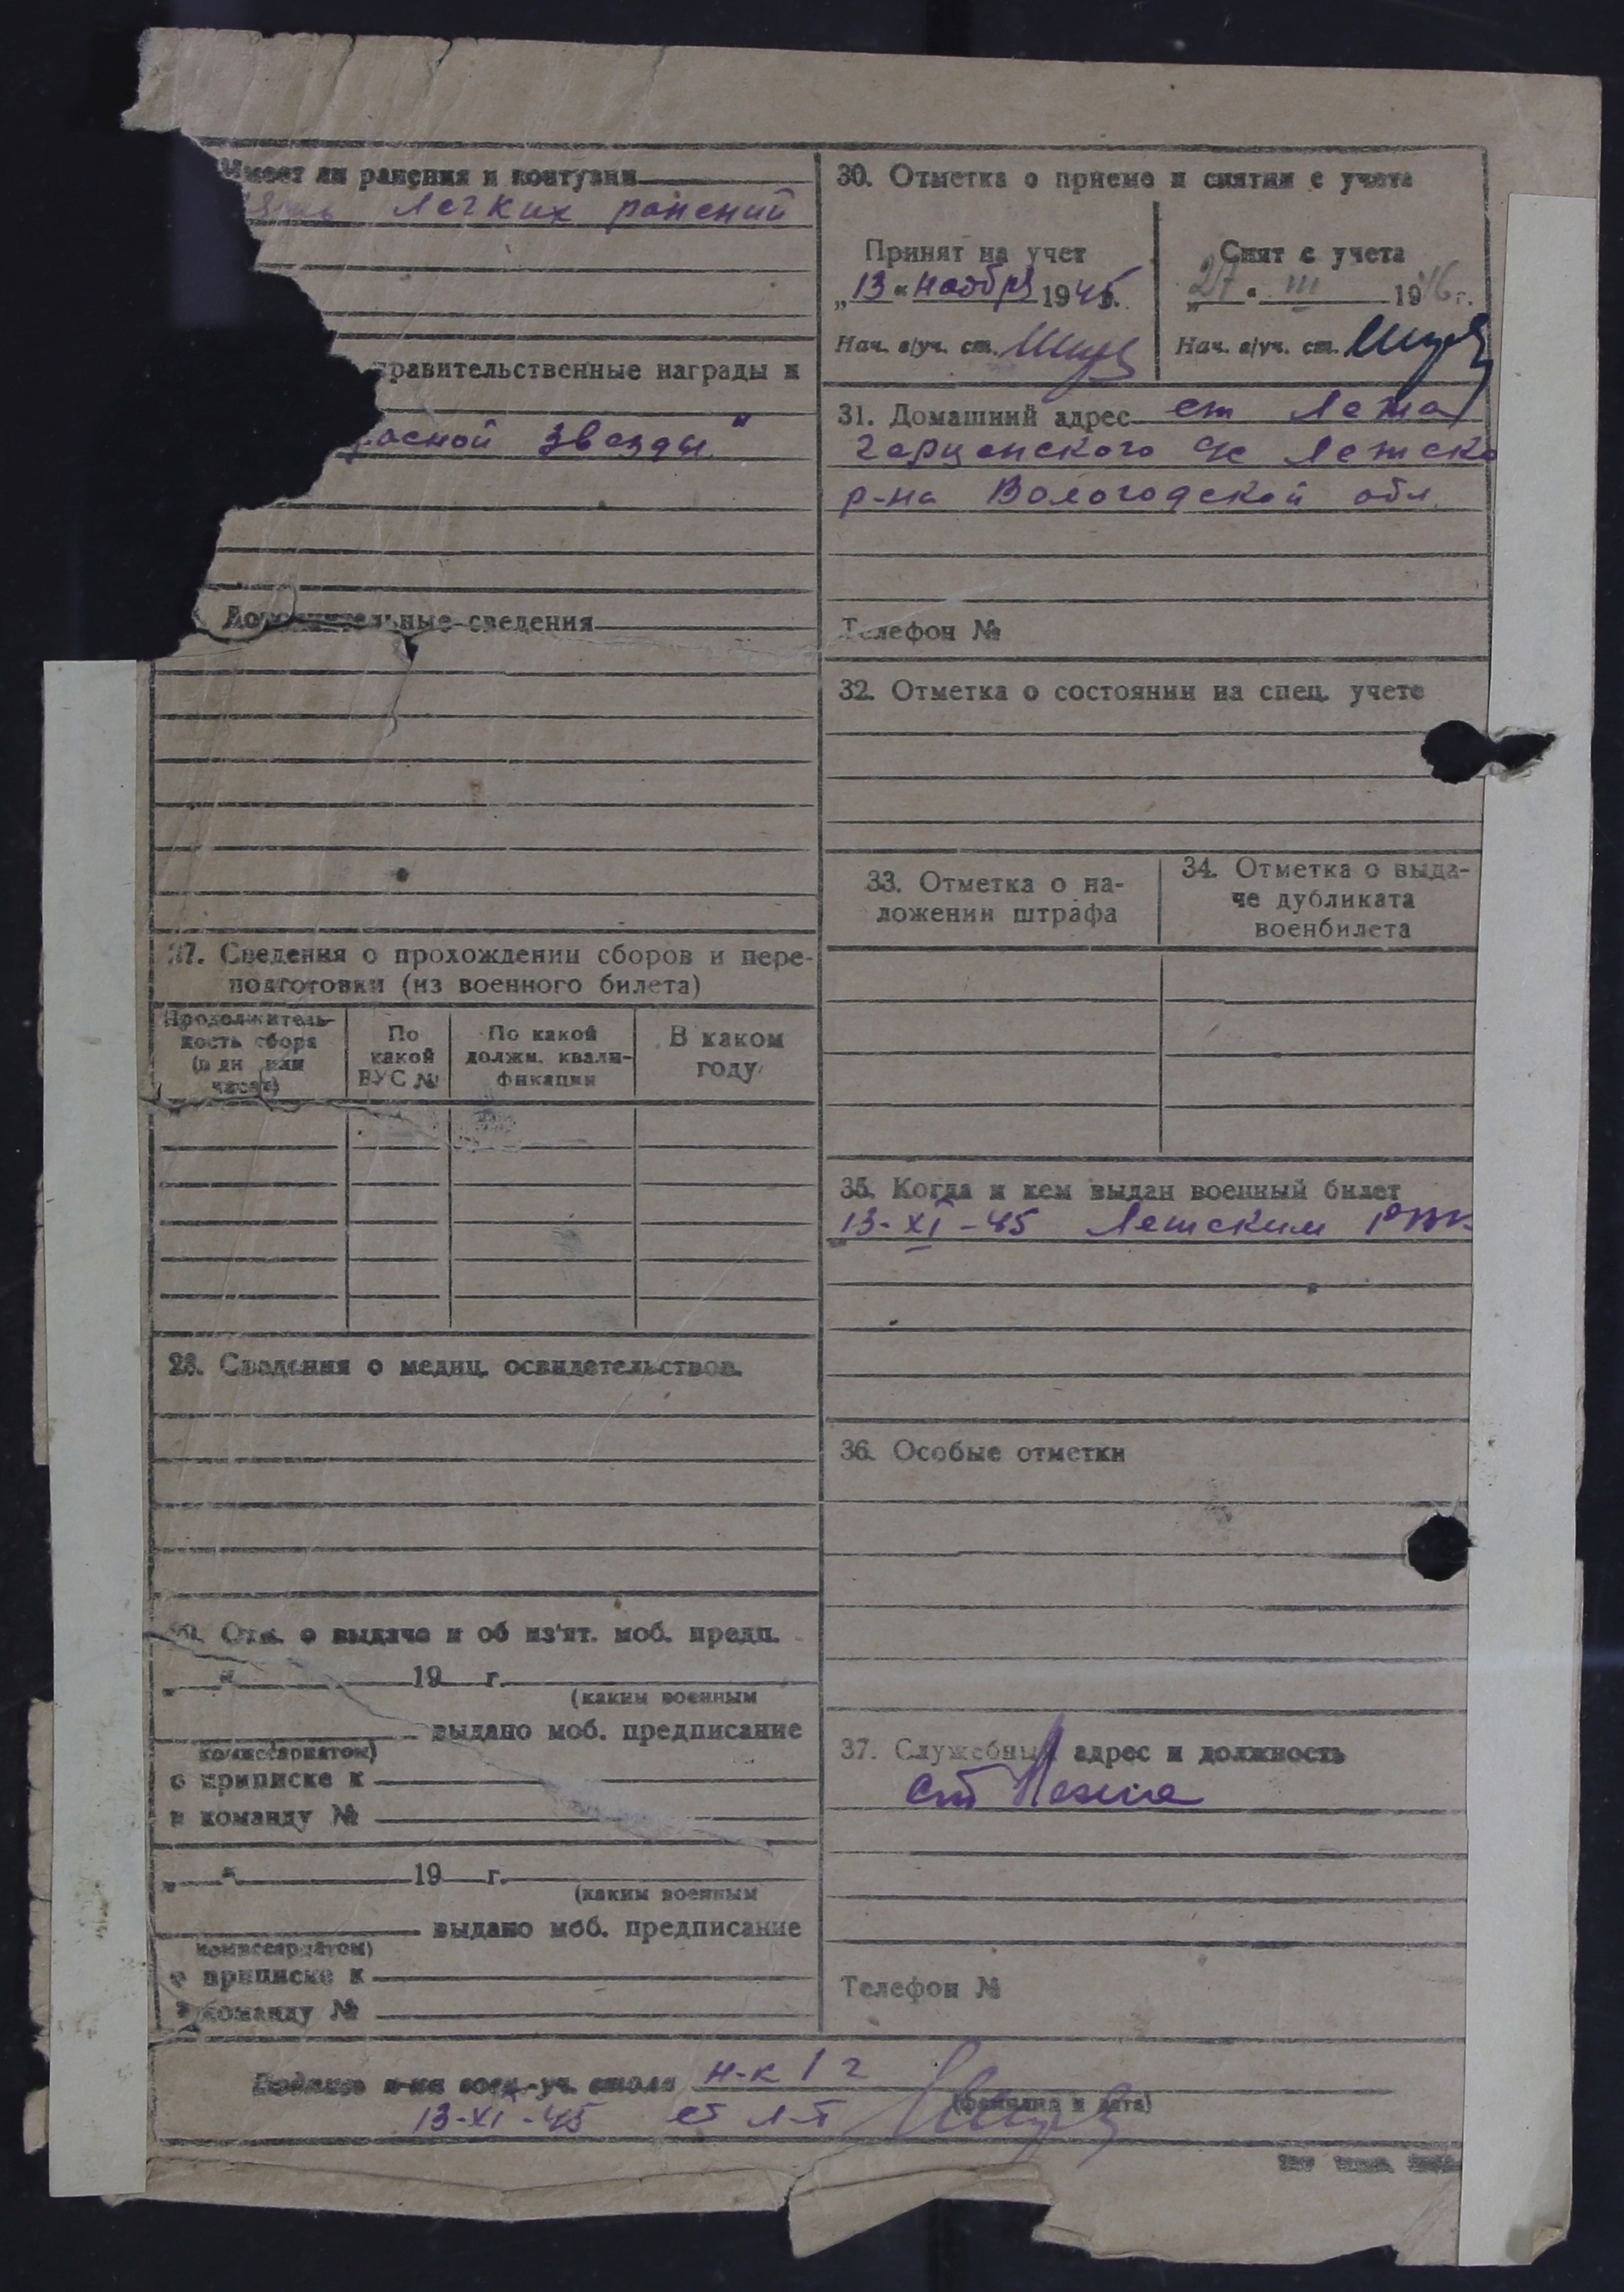 Имеет ли ранения и контузии
легких ранений
правительственные награды и
расной Звезды"
Дополнительные сведения
27. Сведения о прохождении сборов и пере-
подготовки (из военного билета)
Продолжитель-
ность сбора
(в дн или
часах)
По
какой
ВУС №
По какой
должн. квали-
фикации
В каком
году
28. Сведения о медиц. освидетельствов.
Отм. о выдаче и об из'ят. моб. предп.
„ “ 19 г.
(каким военным
выдано моб. предписание
комиссариатом)
о приписке к
в команду №
„ “ 19 г.
(каким военным
выдано моб. предписание
комиссариатом)
о приписке к
в команду №
30. Отметка о приеме и снятии с учета
Принят на учет
„13“ ноября 1945г.
Нач. в/уч. ст.
Снят с учета
„27“ III 1946г.
Нач. в/уч. ст.
31. Домашний адрес ст Лежа
Лежско
р-на Вологодской обл.
Телефон №
32. Отметка о состоянии на спец. учете
33. Отметка о на-
ложении штрафа
34. Отметка о выда-
че дубликата
военбилета
35. Когда и кем выдан военный билет
13-XI-45 Лежским РВК
36. Особые отметки
37. Служебный адрес и должность
ст Лежа
Телефон №
Подпись н-ка воен.-уч. стола н-к 1 ч
(фамилия и дата)
13-XI-45 ст л-т